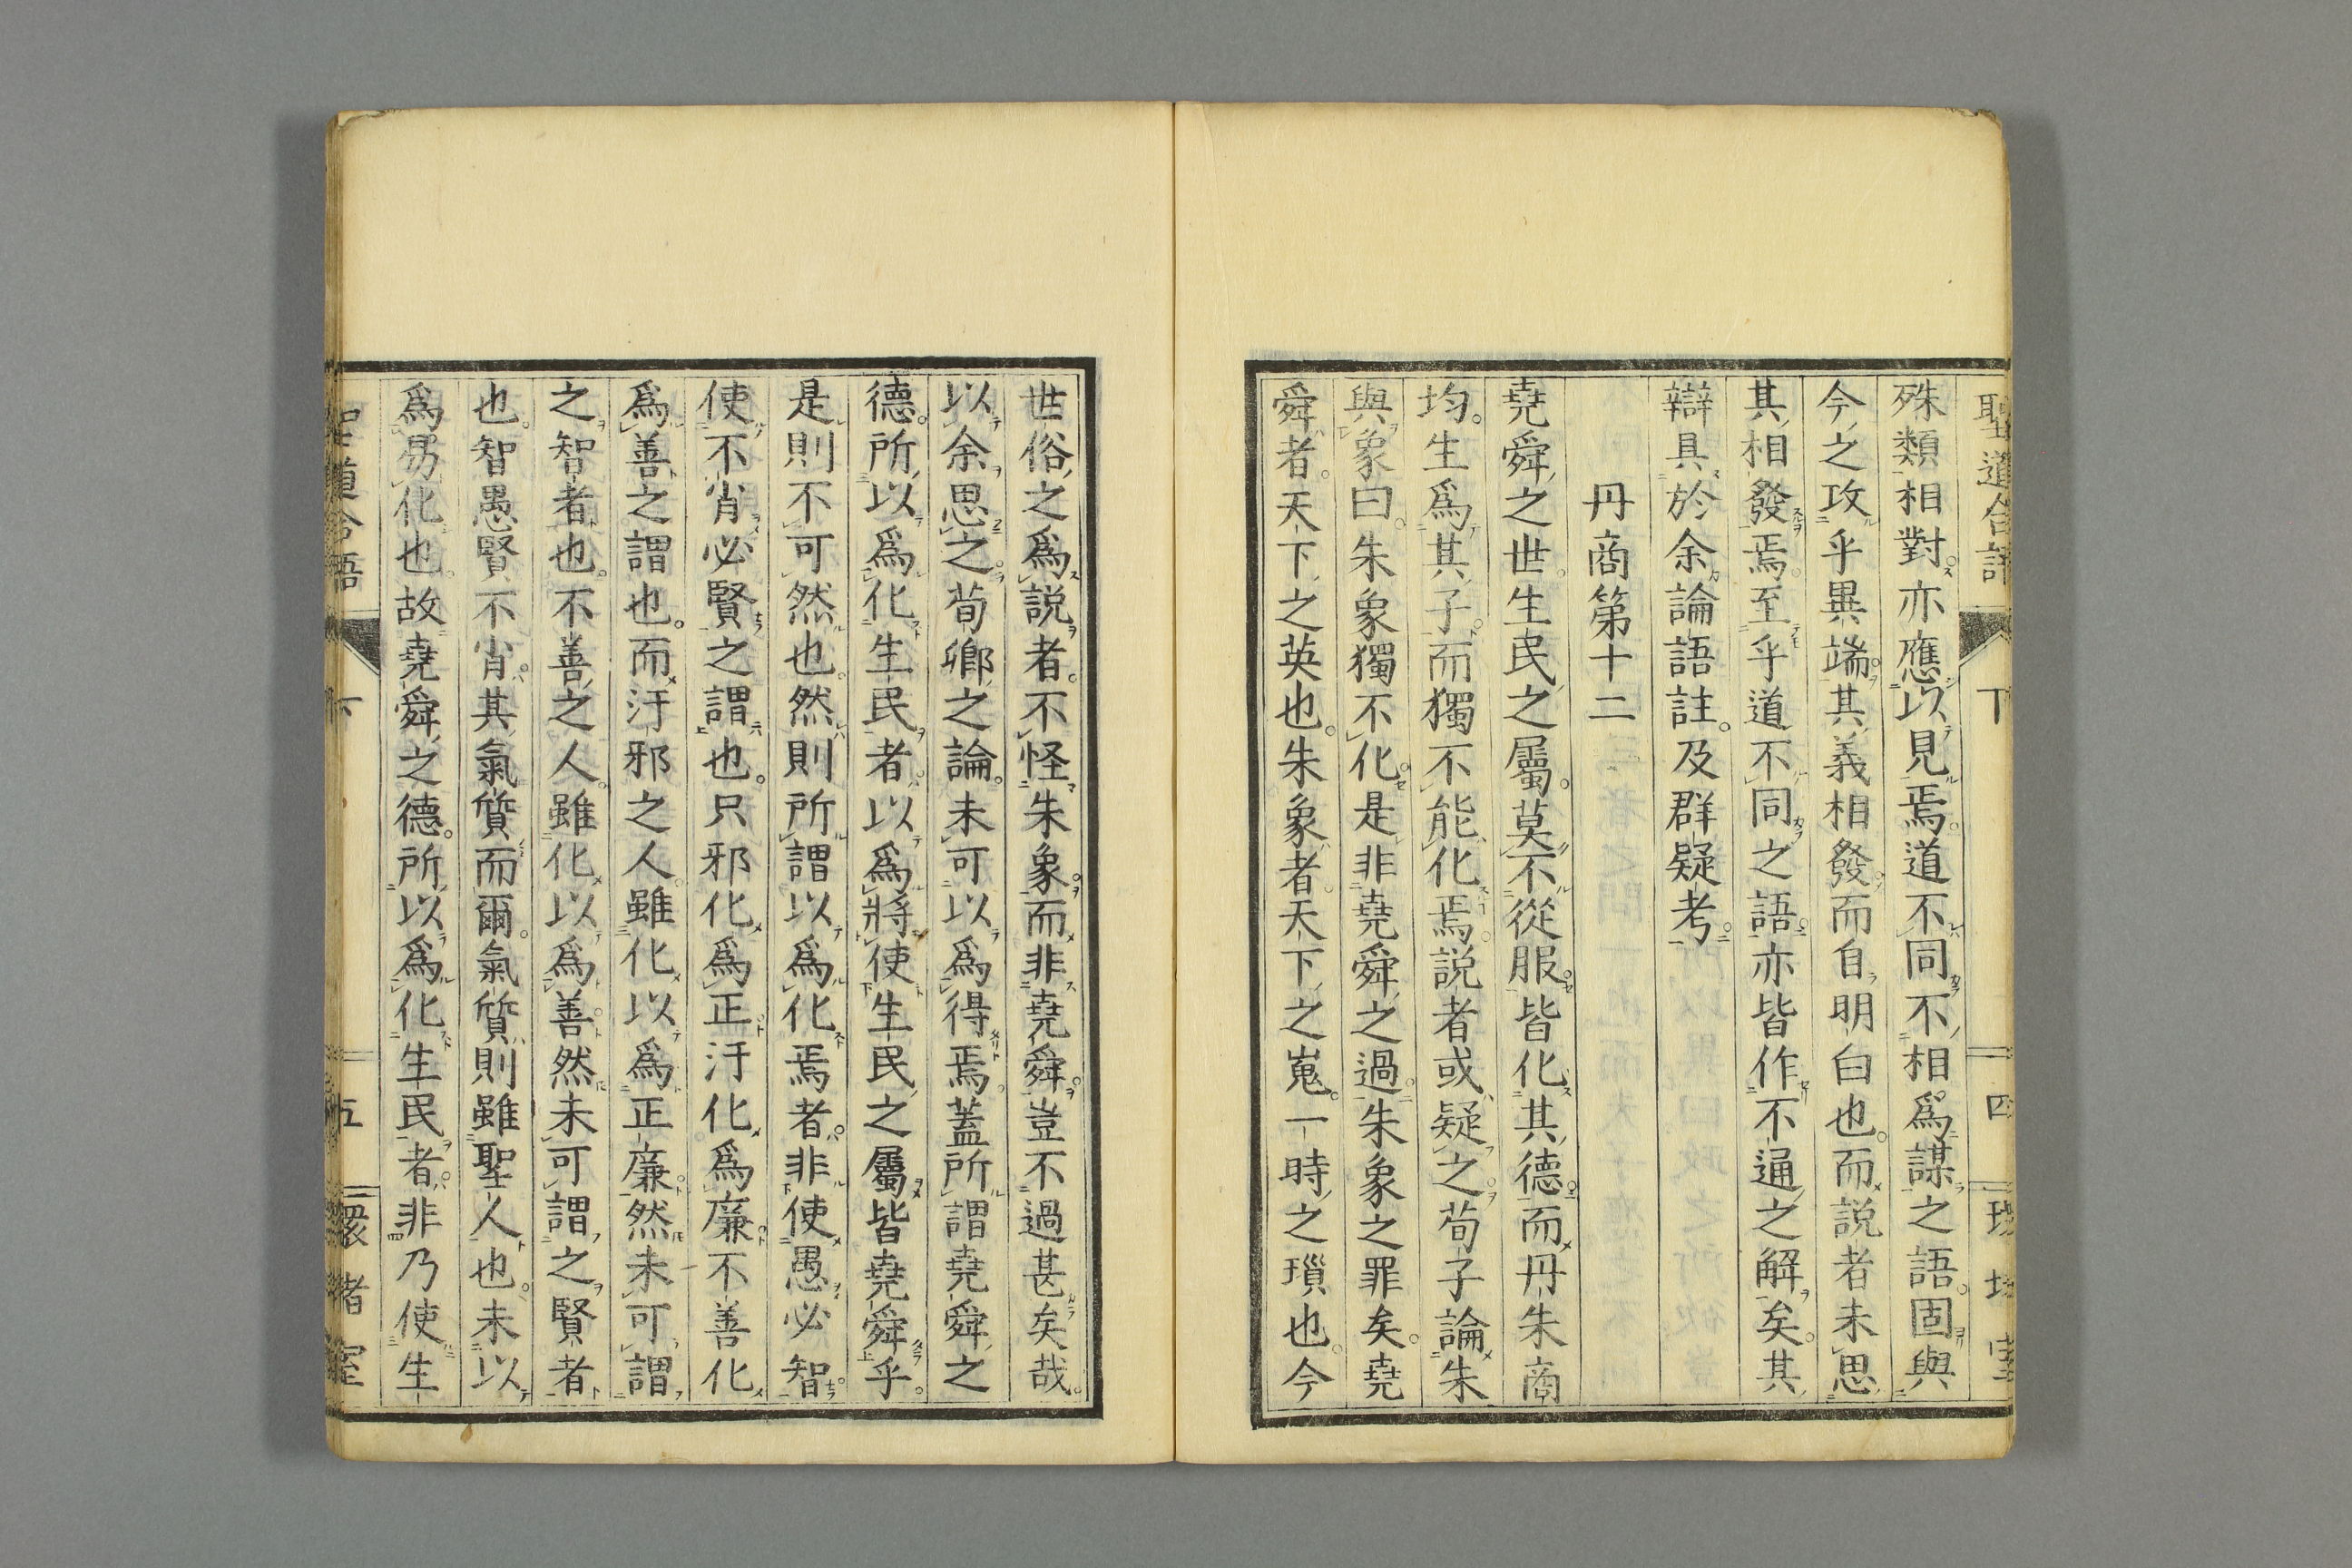 殊類相對亦應以見焉道不同不相爲謀之語固與
今之攻乎異端其義相發而自明白也而説者未思
其相發焉至乎道不同之語亦皆作不通之解矣其
辯具於余論語註及群疑考
丹商第十二
堯舜之世生民之屬莫不從服皆化其德而丹朱商
均生爲其子而獨不能化焉説者或疑之荀子論朱
與象曰朱象獨不化是非堯舜之過朱象之罪矣堯
舜者天下之英也朱象者天下之嵬一時之瑣也今
世俗之爲説者不怪朱象而非堯舜豈不過甚矣哉
以余思之荀卿之論未可以爲得焉蓋所謂堯舜之
德所以爲化生民者以爲將使生民之屬皆堯舜乎
是則不可然也然則所謂以爲化焉者非使愚必智
使不肖必賢之謂也只邪化爲正汙化爲廉不善化
爲善之謂也而汙邪之人雖化以爲正廉然未可謂
之智者也不善之人雖化以爲善然未可謂之賢者
也智愚賢不肖其氣質而爾氣質則雖聖人也未以
爲易化也故堯舜之德所以爲化生民者非乃使生
下
五